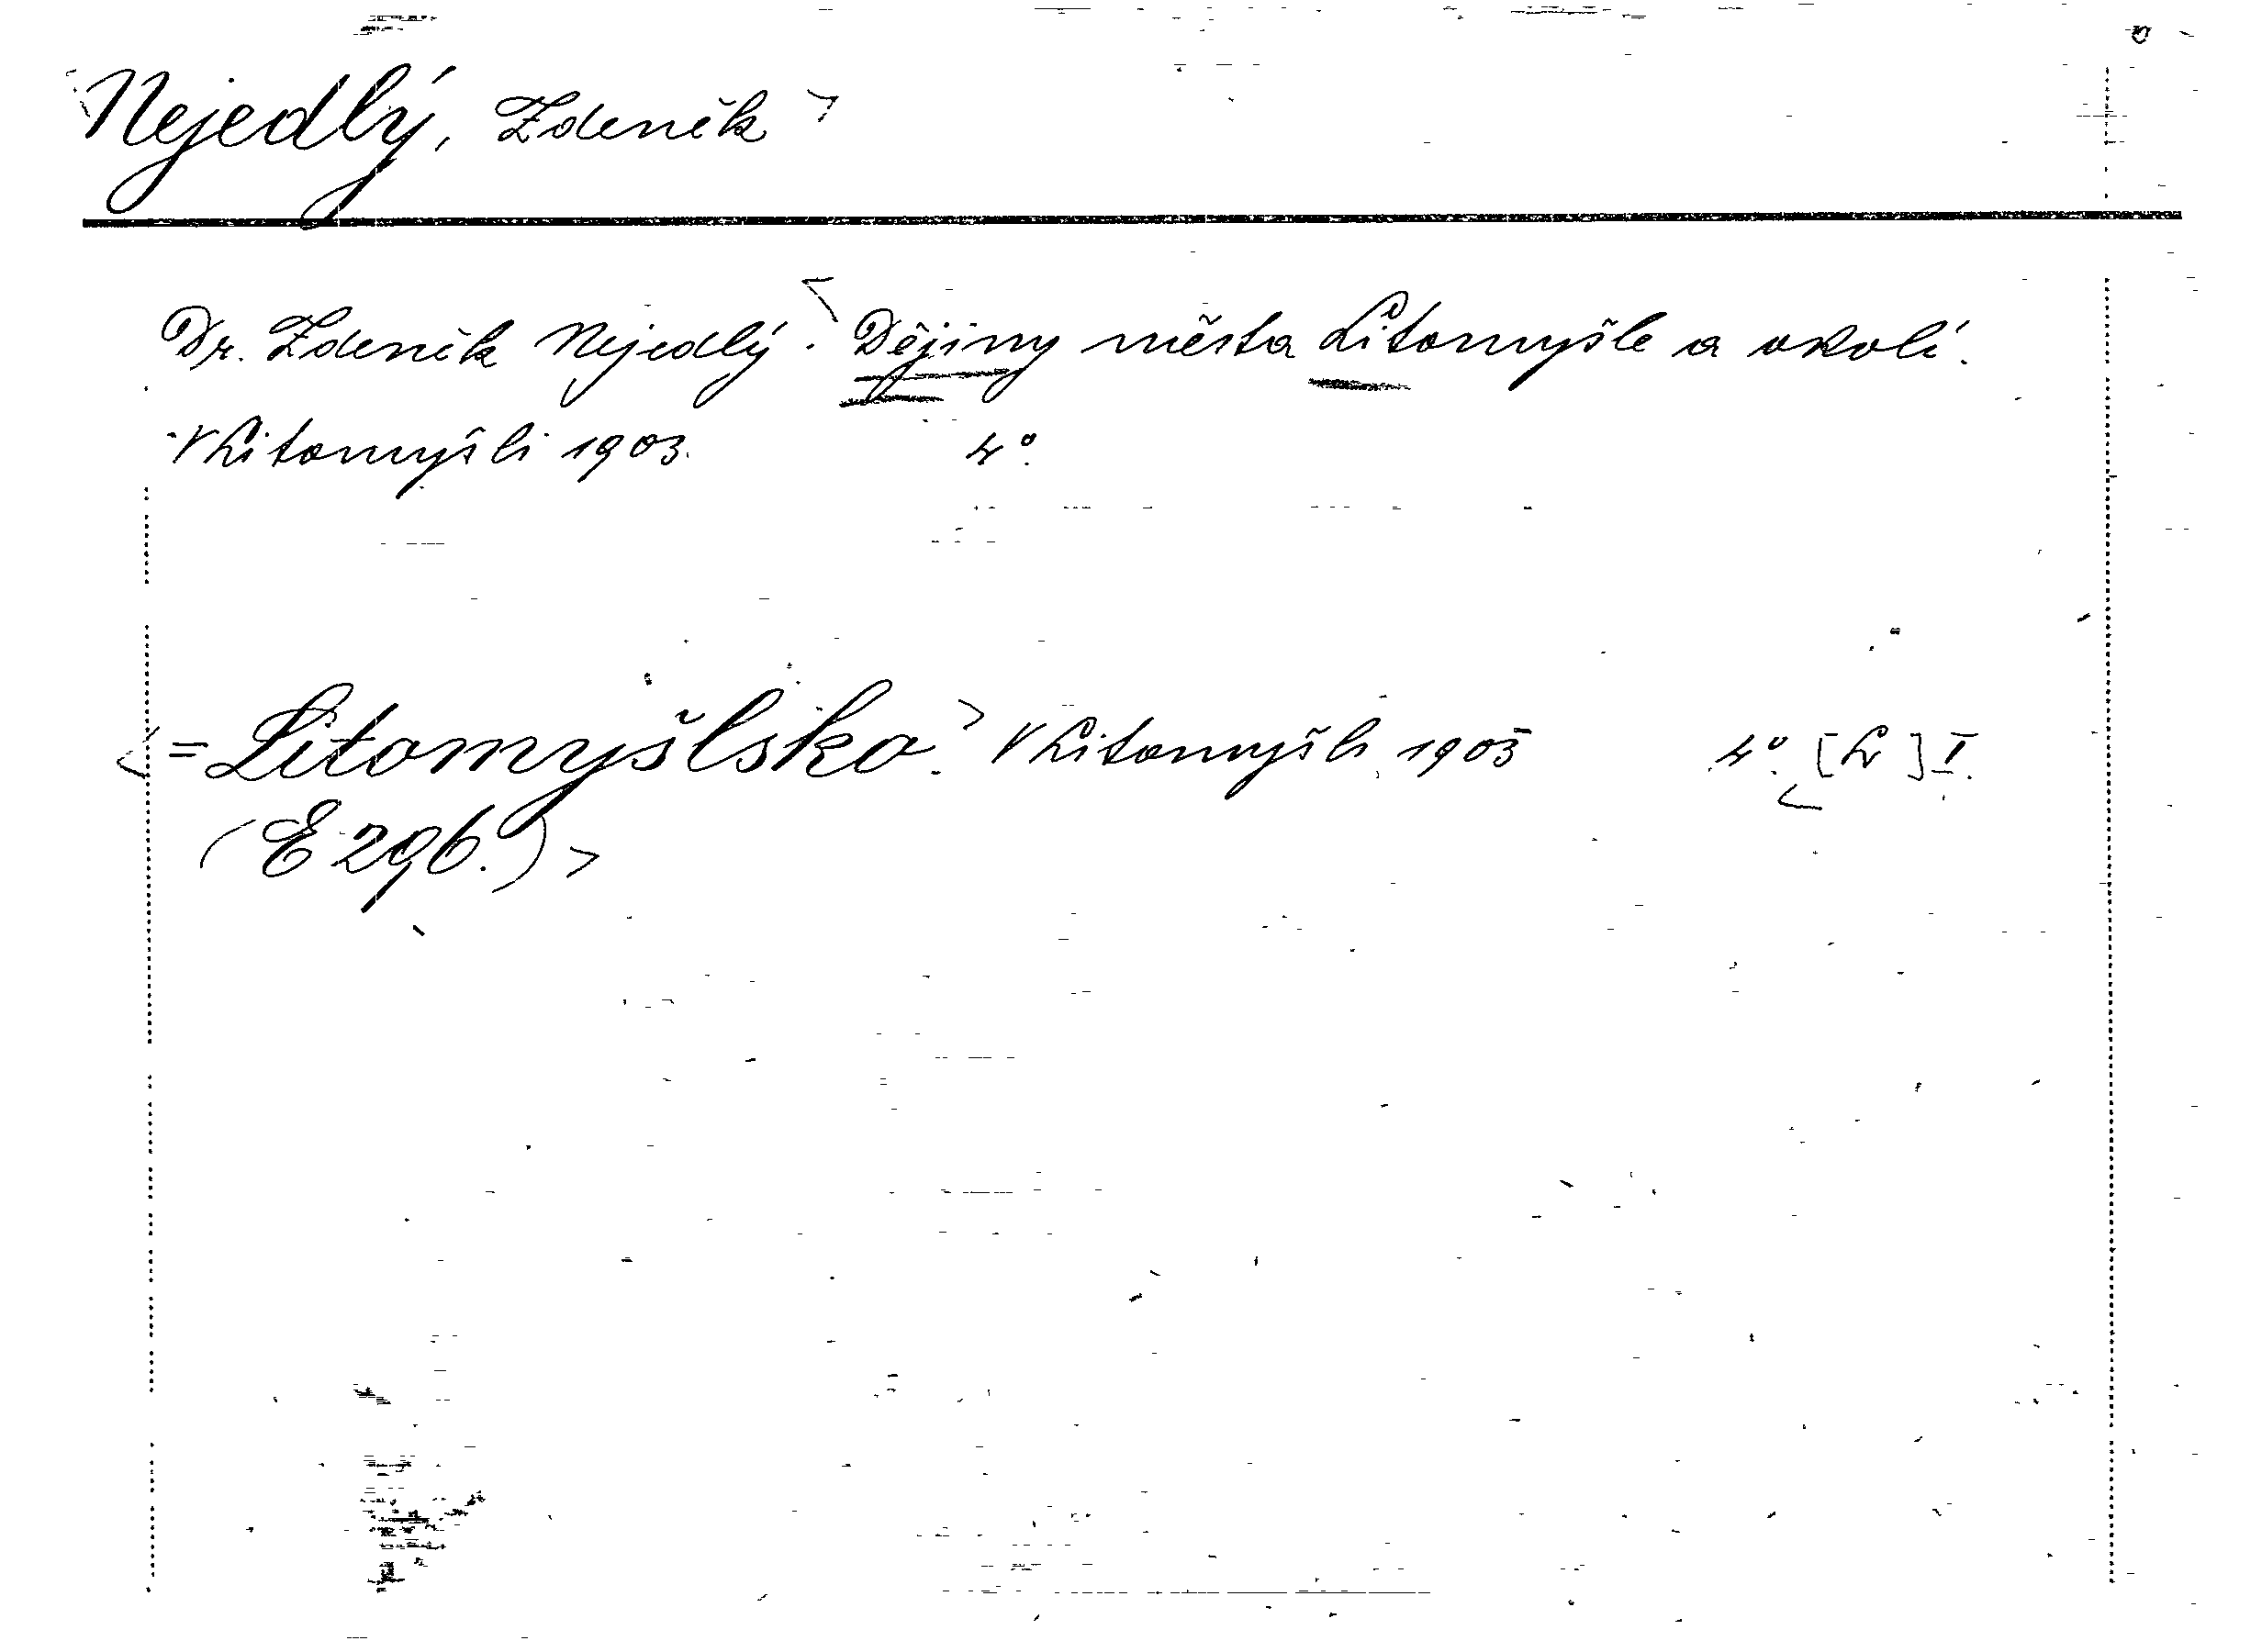 Nejedlý, Zdeněk
Dr. Zdeněk Nejedlý: Dějiny města Litomyšle a okolí.
V Litomyšli 1903. 4°.
= Litomyšlsko. V Litomyšli, 1903 4°. [L] I.
(E 296.)